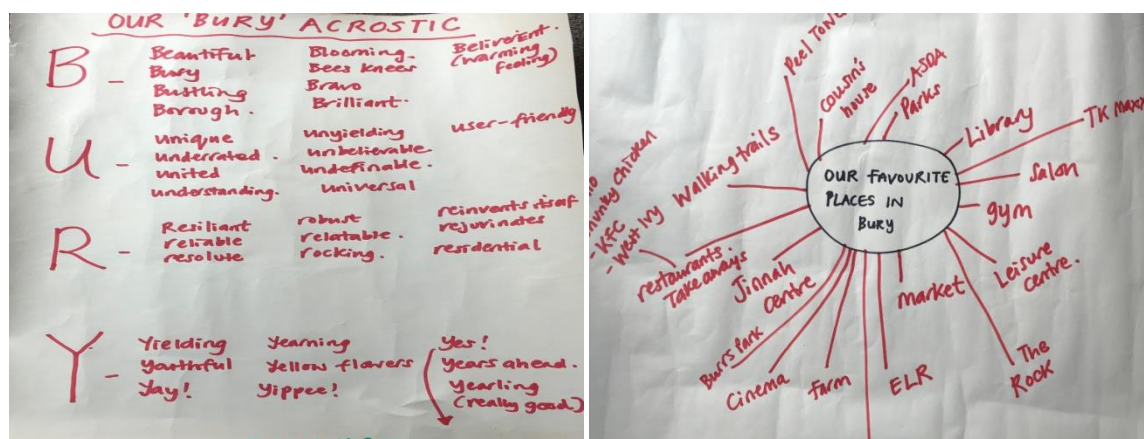 OUR 'BURY' ACROSTIC
B - Beautiful
Bury
Bustling
Borough.
Blooming.
Bees knees
Bravo
Brilliant.
Beliverient.
(warming
feeling)
U - unique
underrated.
united
understanding.
unyielding
unbelievable
undefinable.
universal
user-friendly
R - Resiliant
reliable
resolute
robust
relatable.
rocking.
reinvents itself
rejuvinates
residential
Y - Yielding
Youthful
Yay!
Yearning
Yellow flowers
Yippee!
Yes!
Years ahead.
Yearling
(really good)
OUR FAVOURITE
PLACES IN
BURY
Peel
cousin's
house
ASDA
Parks
Library
TK Maxx
Salon
gym
Leisure
centre.
The
Rock
market
ELR
farm
Cinema
Burrs Park
Jinnah
centre
restaurants
Takeaways
chicken
- KFC
- West Ivy
Walking trails